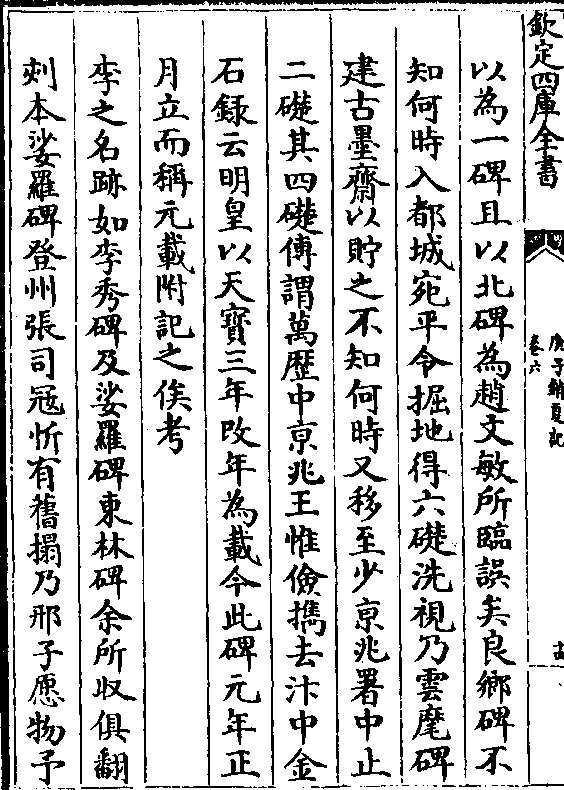 欽定四庫全書
庚子銷夏記
卷六
以為一碑且以北碑為趙文敏所臨誤矣良鄉碑不
知何時入都城宛平令掘地得六礎洗視乃雲麾碑
建古墨齋以貯之不知何時又移至少京兆署中止
二礎其四礎傳謂萬歷中京兆王惟儉攜去汴中金
石錄云明皇以天寶三年改年為載今此碑元年正
月立而稱元載附記之俟考
李之名跡如李秀碑及娑羅碑東林碑余所收俱翻
刻本娑羅碑登州張司冦忻有舊搨乃邢子愿物予